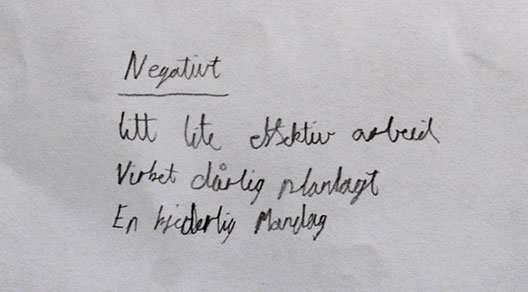 Negativt
litt lite effektiv arbeid
Virket dårlig planlagt
En kjedelig Mandag